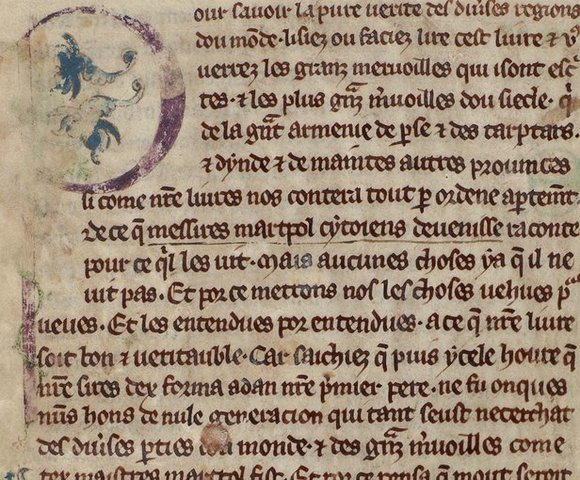 our sauoir la pure uerite des diuises regions
dou mōde· lisiez ou faciez lire cest liure ⁊ v᷒
uerrez les granz meruoilles qui i sont esc͛
tes· ⁊ les plus gñz m̃uoilles dou siecle· q̃
de la gñt armenie de ꝑse ⁊ des tarptars·
⁊ dynde ⁊ de maintes autres prouinces
si come nr̃e liures nos contera tout ꝑ ordene
de ce q̃ messires marcpol cytoiens deuenisse raconte
pour ce q̃l les uit· Mais aucunes choses ya q̃ il ne
uit pas· Et por ce metrons nos les choses uehues p
ueues· Et les entendues por entendues· a ce q̃ nr̃e liure
soit bon ⁊ ueritauble· Car saichiez q̃ puis ycele houre q̃
nr̃e sires dex forma adan nr̃e p̃mier pere· ne fu onques
nūs hons de nule generacion qui tant seust ne cerchat
des diũses ꝑties dou monde· ⁊ des gñz m̃uoilles come
maistres marcpol fist· Et por ce pensa q̃ mout seroit